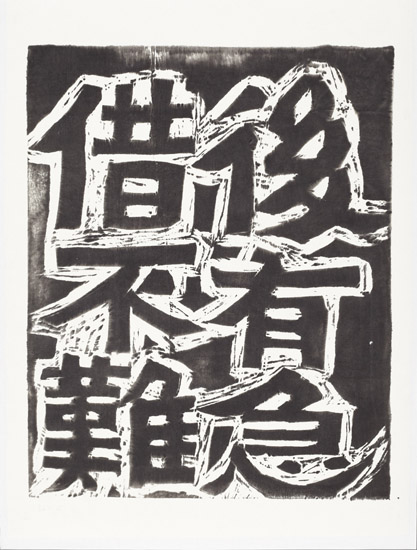 後有急
借不難